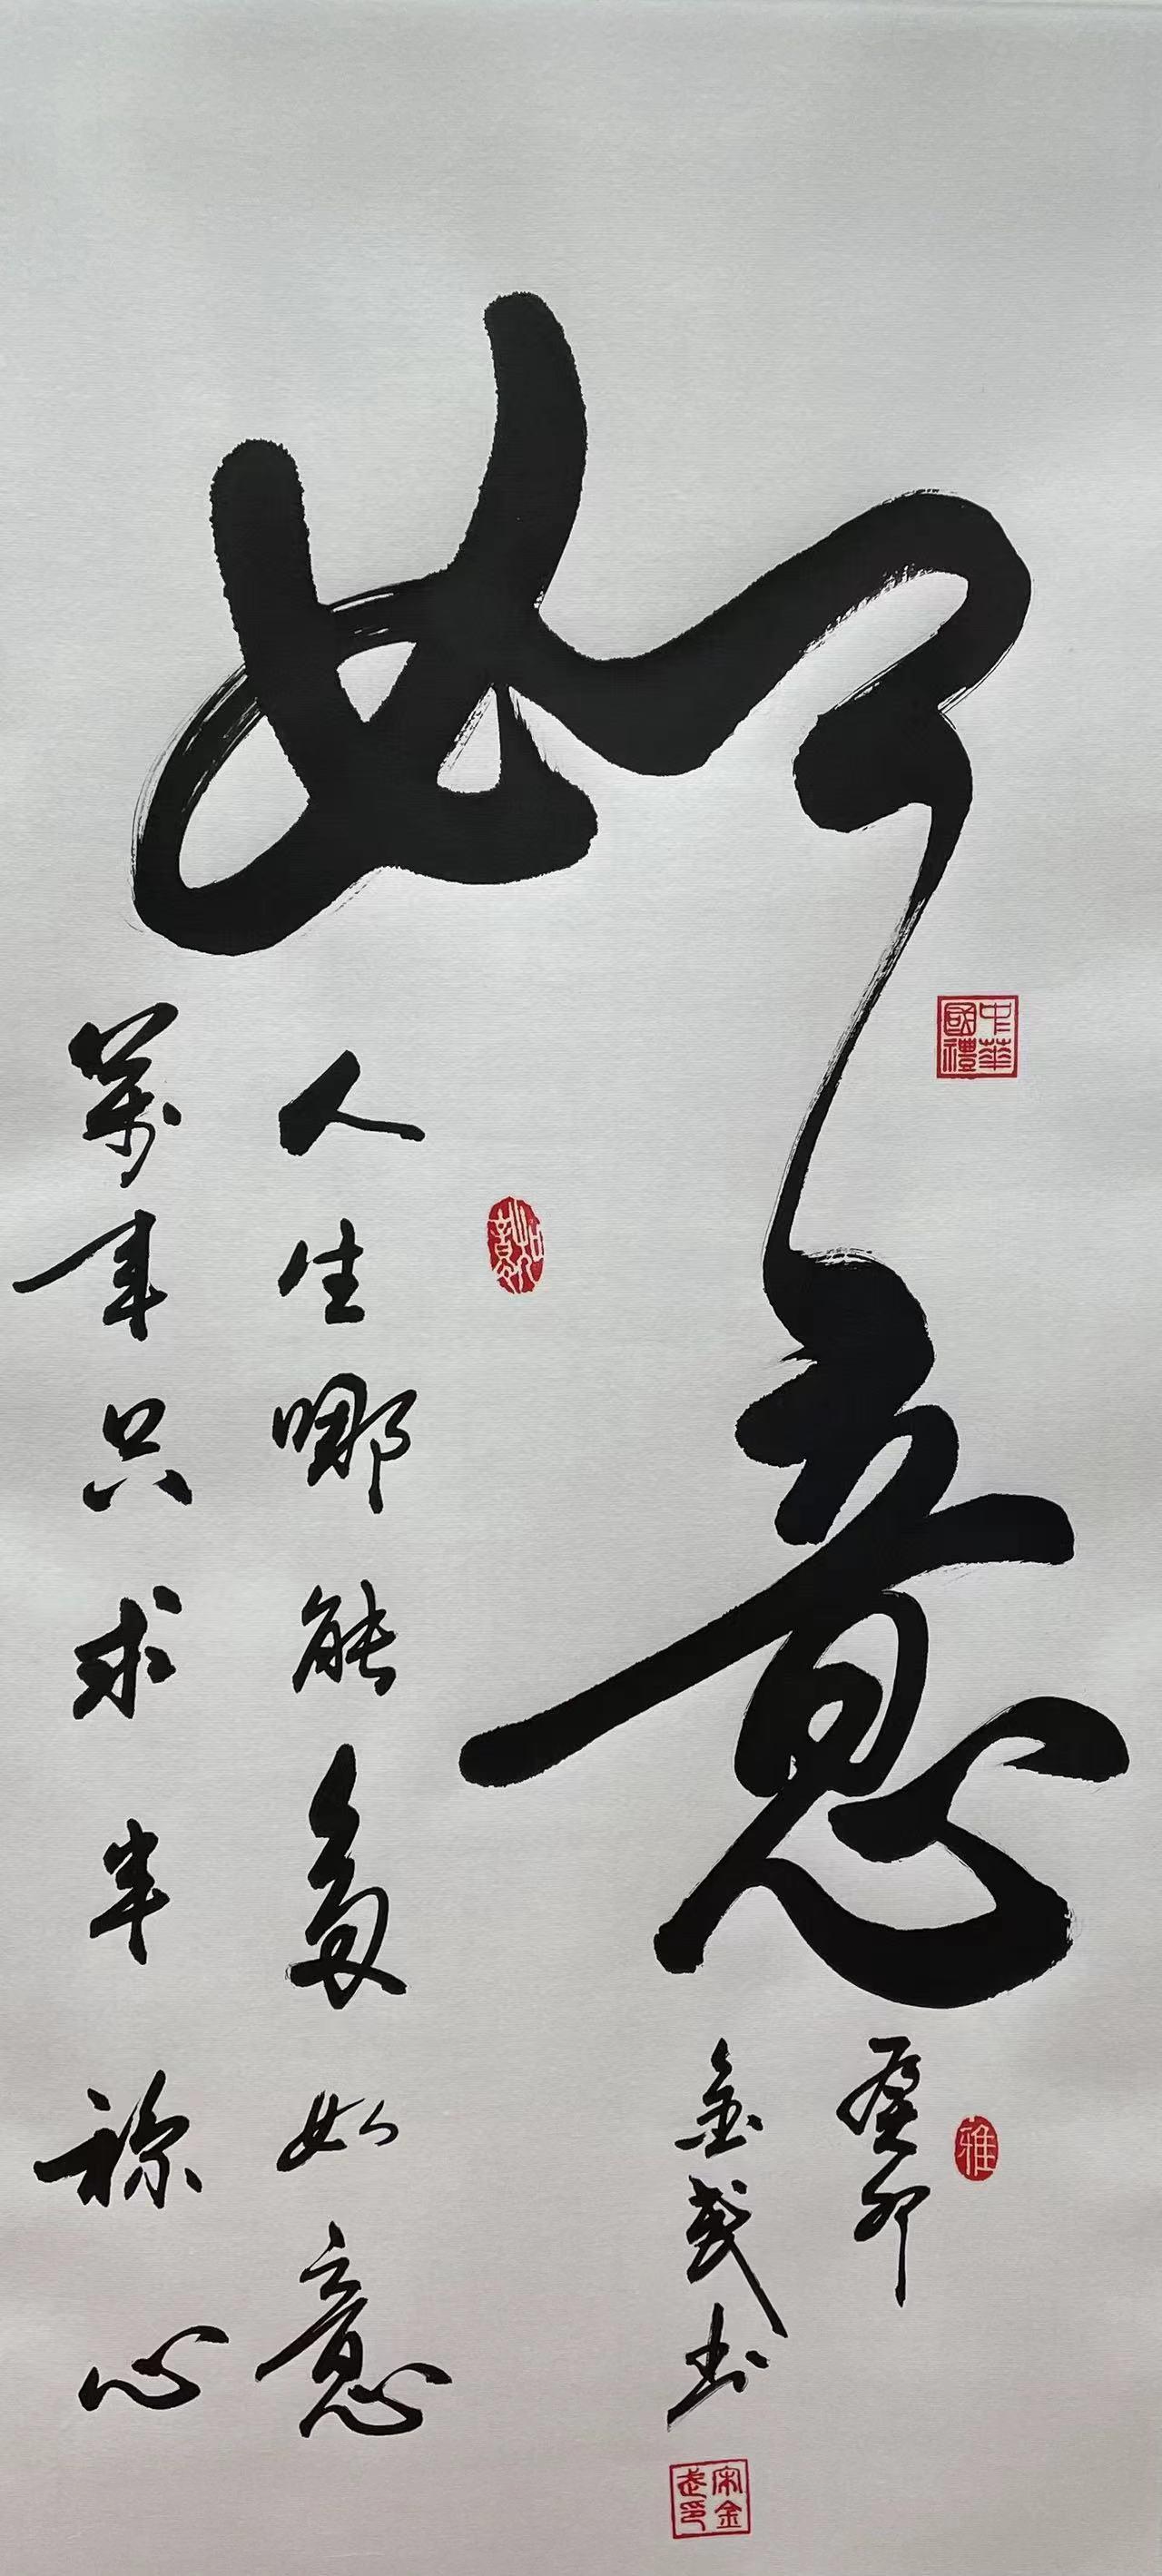 如意
中華國禮
人生哪能多如意
萬事只求半称心
癸卯
金武书
雅
宋金武印